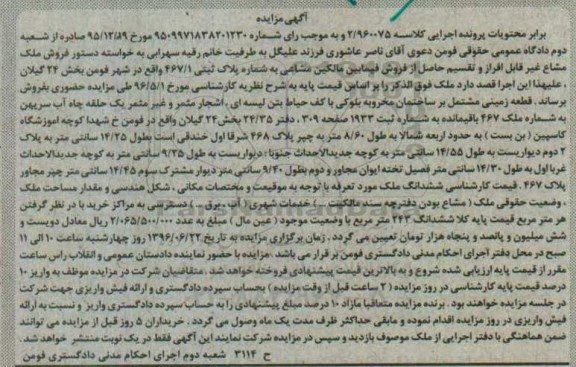 آگهی مزایده
برابر محتویات پرونده اجرایی کلاسه ۲/۹۶۰۰۷۵ و به موجب رای شماره ۹۵۰۹۹۷۱۸۳۸۲۰۱۲۳۰ مورخ ۹۵/۱۲/۸۹ صادره از شعبه
دوم دادگاه عمومی حقوقی فومن دعوی آقای ناصر عاشوری فرزند علیگل به طرفیت خانم رقیه سهرابی به خواسته دستور فروش ملک
مشاع غیر قابل افراز و تقسیم حاصل از فروش فیمابین مالکین مشاعی به شماره پلاک ثبتی ۴۶۷/۱ واقع در شهر فومن بخش ۲۴ گیلان
، علیهذا این اجرا قصد دارد ملک فوق الذکر را بر اساس قیمت پایه به شرح نظریه کارشناسی مورخ ۹۶/۵/۱ طی مزایده حضوری بفروش
برساند . قطعه زمینی مشتمل بر ساختمان مخروبه بلوکی با کف حیاط بتن لیسه ای ، اشجار مثمر و غیر مثمر یک حلقه چاه آب سرپهن
به شماره ملک ۴۶۷ باقیمانده به شماره ثبت ۱۹۳۳ صفحه ۳۰۹ ، دفتر ۲۴/۳۵ بخش ۲۴ گیلان واقع در فومن خ شهدا کوچه آموزشگاه
کاسپین ( بن بست ) به حدود اربعه شمالا به طول ۸/۶۰ متر به چپر پلاک ۴۶۸ شرقا اول خندقی است بطول ۱۴/۲۵ سانتی متر به پلاک
۲ دوم دیواریست به طول ۱۴/۵۵ سانتی متر به کوچه جدیدالاحداث جنوبا : دیواریست به طول ۹/۲۵ سانتی متر به کوچه جدیدالاحداث
غربا اول به طول ۱۴/۳۰ سانتی متر فصیل تخته ایوان مجاور و دوم بطول ۹/۴۰ سانتی متر دیوار مشترک سوم ۱۴/۴۵ سانتی متر چپر مجاور
پلاک ۴۶۷ . قیمت کارشناسی ششدانگ ملک مورد تعرفه با توجه به موقعیت و مختصات مکانی ، شکل هندسی و مقدار مساحت ملک
، وضعیت حقوقی ملک ( مشاع بودن دفترچه سند مالکیت ... ) خدمات شهری ( آب ، برق .. ) دسترسی به مراکز خرید با در نظر گرفتن
هر متر مربع قیمت پایه کلا ششدانگ ۲۴۳ متر مربع با وضعیت موجود ( عین مال ) مبلغ به عدد ۲/۰۶۵/۵۰۰/۰۰۰ ریال معادل دویست و
شش میلیون و پانصد و پنجاه هزار تومان تعیین می گردد . زمان برگزاری مزایده به تاریخ ۱۳۹۶/۰۶/۲۲ روز چهارشنبه ساعت ۱۰ الی ۱۱
صبح در محل دفتر اجرای احکام مدنی دادگستری فومن بر قرار می باشد . مزایده با حضور نماینده دادستان عمومی و انقلاب راس ساعت
مقرر از قیمت پایه ارزیابی شده شروع و به بالاترین قیمت پیشنهادی فروخته خواهد شد . متقاضیان شرکت در مزایده موظف به واریز ۱۰
درصد قیمت پایه کارشناسی در روز مزایده ( ۲ ساعت قبل از وقت مزایده ) بحساب سپرده دادگستری و ارائه فیش واریزی جهت شرکت
در جلسه مزایده خواهند بود . برنده مزایده متعاقبا مازاد ۱۰ درصد مبلغ پیشنهادی را به حساب سپرده دادگستری واریز و نسبت به ارائه
فیش واریزی در روز مزایده اقدام نموده و مابقی حداکثر ظرف مدت یک ماه وصول می گردد . خریداران ۵ روز قبل از مزایده می توانند
ضمن هماهنگی با دفتر اجرایی از ملک موصوف بازدید و سپس در مزایده شرکت نمایند این آگهی فقط در یک نوبت منتشر خواهد شد .
ح ۳۱۱۴ شعبه دوم اجرای احکام مدنی دادگستری فومن